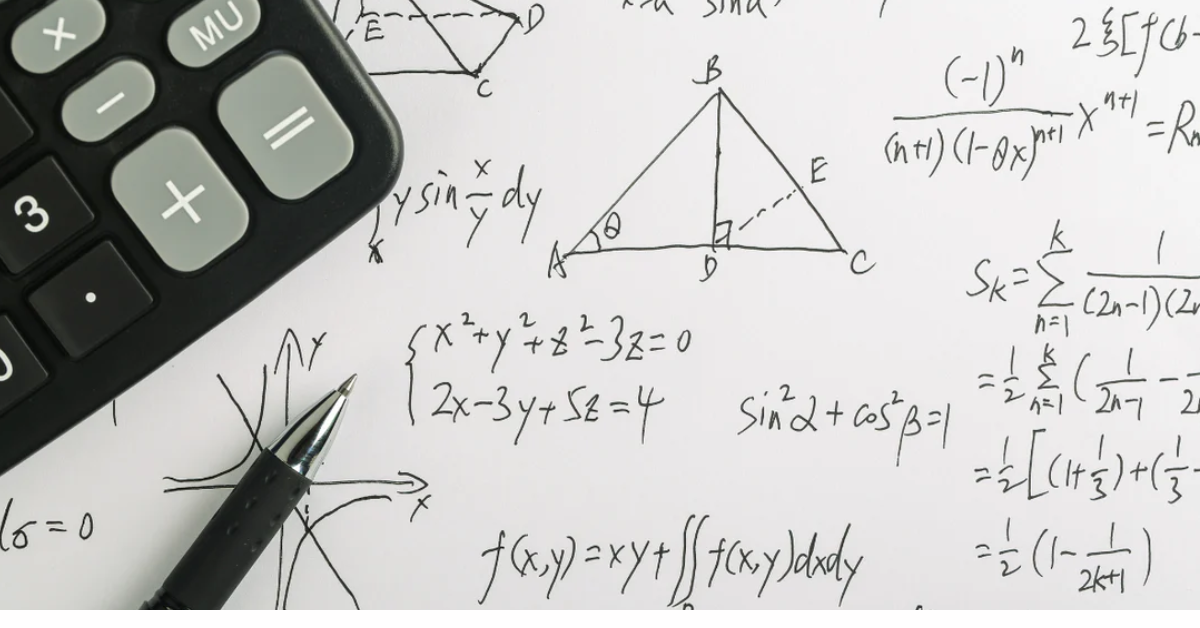 ×
MU
−
=
+
3
.
E
D
C
sinα
2ξ[f(b-
(-1)ⁿ
(n+1)(1-θx)ⁿ⁺¹
xⁿ⁺¹ = Rₙ
y sin x/y dy
x
B
E
θ
A
D
C
Sₖ = ∑ k n=1 1/(2n-1)(2n
= 1/2 ∑ k n=1 (1/2n-1 -
= 1/2 [(1+1/3)+(1/3-
= 1/2 (1- 1/2k+1)
y
x
{ x²+y²+z²-3z=0
2x-3y+5z=4
sin²α+cos²β=1
σ=0
f(x,y)=xy+∬f(x,y)dxdy